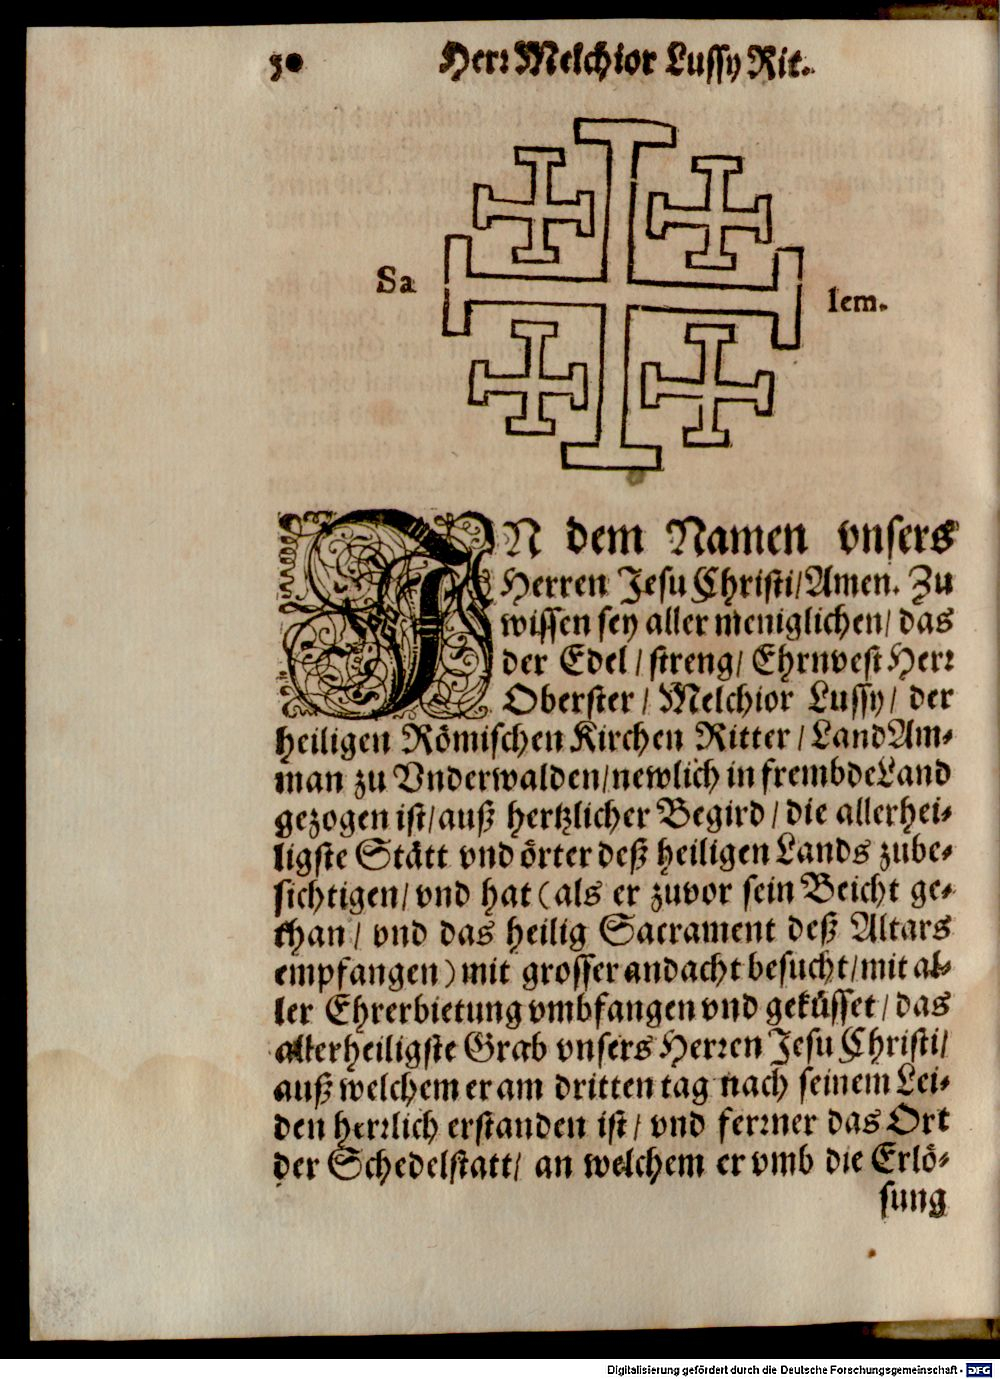 50 Herr Melchior Lussy Rit.
Sa lem.
IN dem Namen vnsers
Herren Jesu Christi/Amen. Zu
wissen sey aller meniglichen/ das
der Edel/ streng/ Ehrnvest Herr
Oberster/ Melchior Lussy/ der
heiligen Römischen Kirchen Ritter/ LandAm-
man zu Vnderwalden/newlich in frembdeLand
gezogen ist/auß hertzlicher Begird/ die allerhei-
ligste Stätt vnd örter deß heiligen Lands zube-
sichtigen/ vnd hat (als er zuvor sein Beicht ge-
than/ vnd das heilig Sacrament deß Altars
empfangen) mit grosser andacht besucht/mit al-
ler Ehrerbietung vmbfangen vnd geküsset/ das
allerheiligste Grab vnsers Herren Jesu Christi/
auß welchem er am dritten tag nach seinem Lei-
den herrlich erstanden ist/ vnd ferrner das Ort
der Schedelstatt/ an welchem er vmb die Erlö-
sung
Digitalisierung gefördert durch die Deutsche Forschungsgemeinschaft - DFG